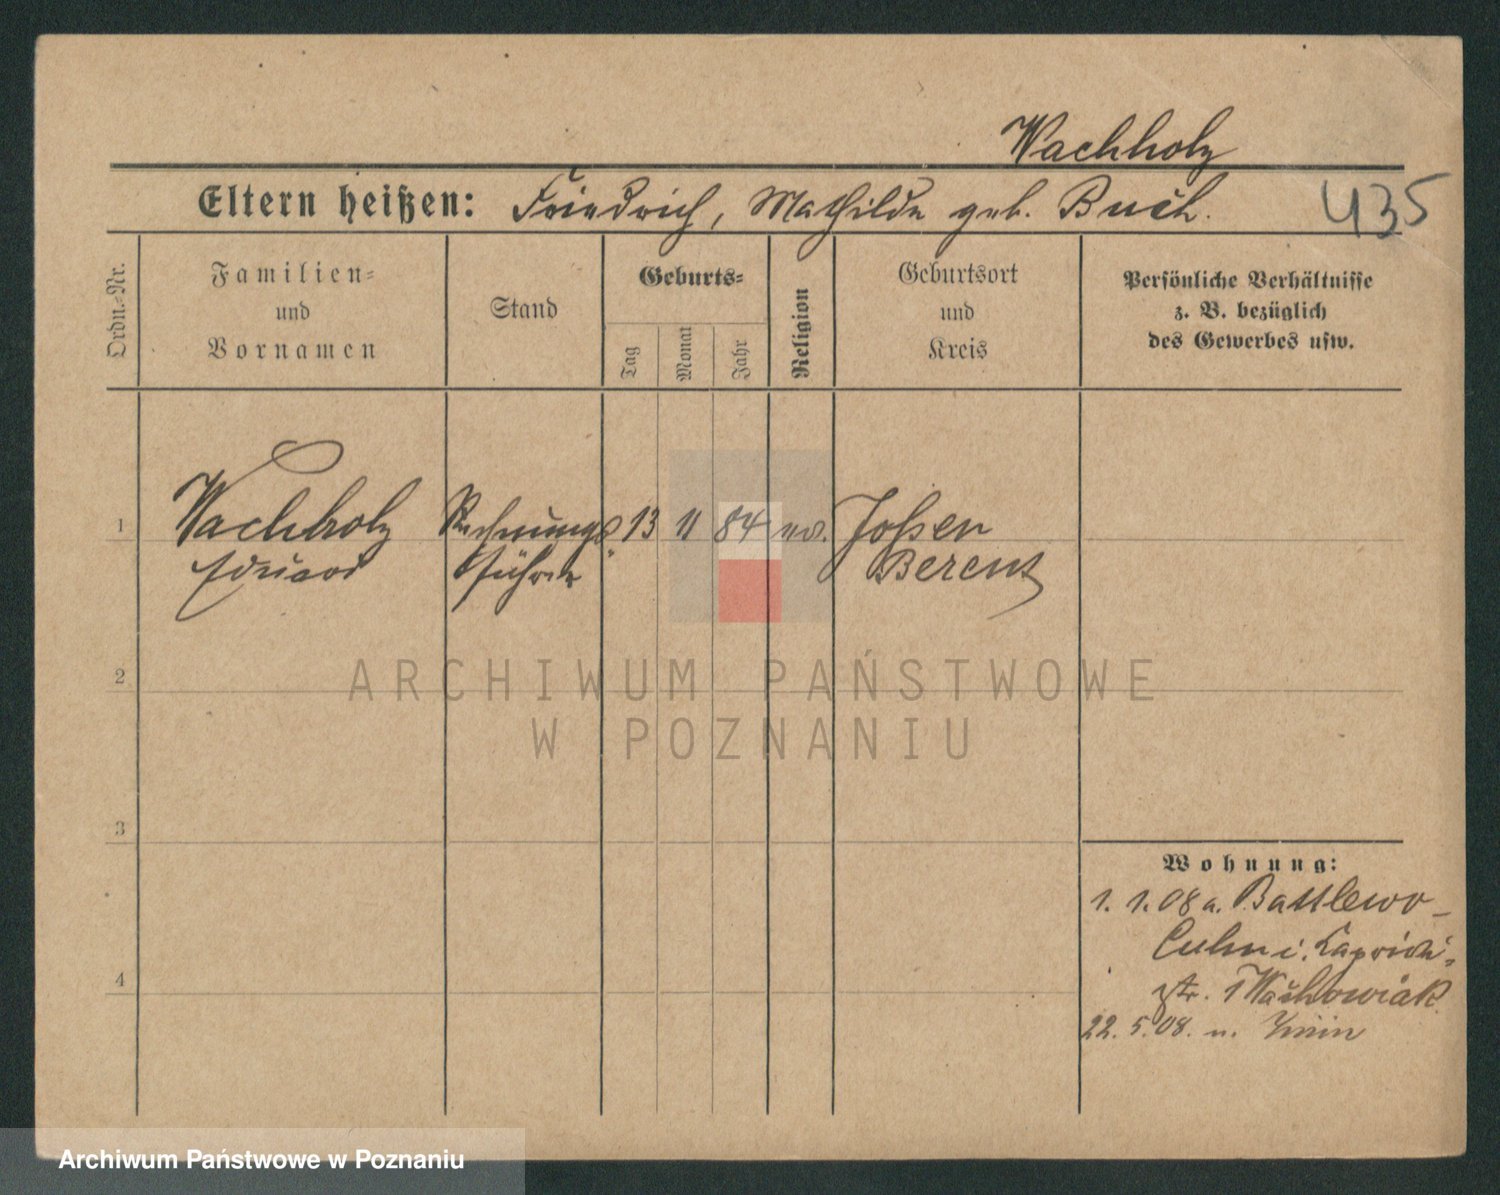 Wachholz
Eltern heißen: Friedrich, Mathilde geb. Buch.
435
Ordn.-Nr.
Familien-
und
Vornamen
Stand
Geburts-
Tag
Monat
Jahr
Religion
Geburtsort
und
Kreis
Persönliche Verhältnisse
z. B. bezüglich
des Gewerbes usw.
1
Wachholz
Eduard
Rechnungs
führer
13
11
84
ev.
Jossen
Berent
2
ARCHIWUM PAŃSTWOWE
W POZNANIU
3
4
Wohnung:
1. 1. 08 a. Battlewo
Culm i.
str. 1 Wachowiak
22. 5. 08. n. Znin
Archiwum Państwowe w Poznaniu